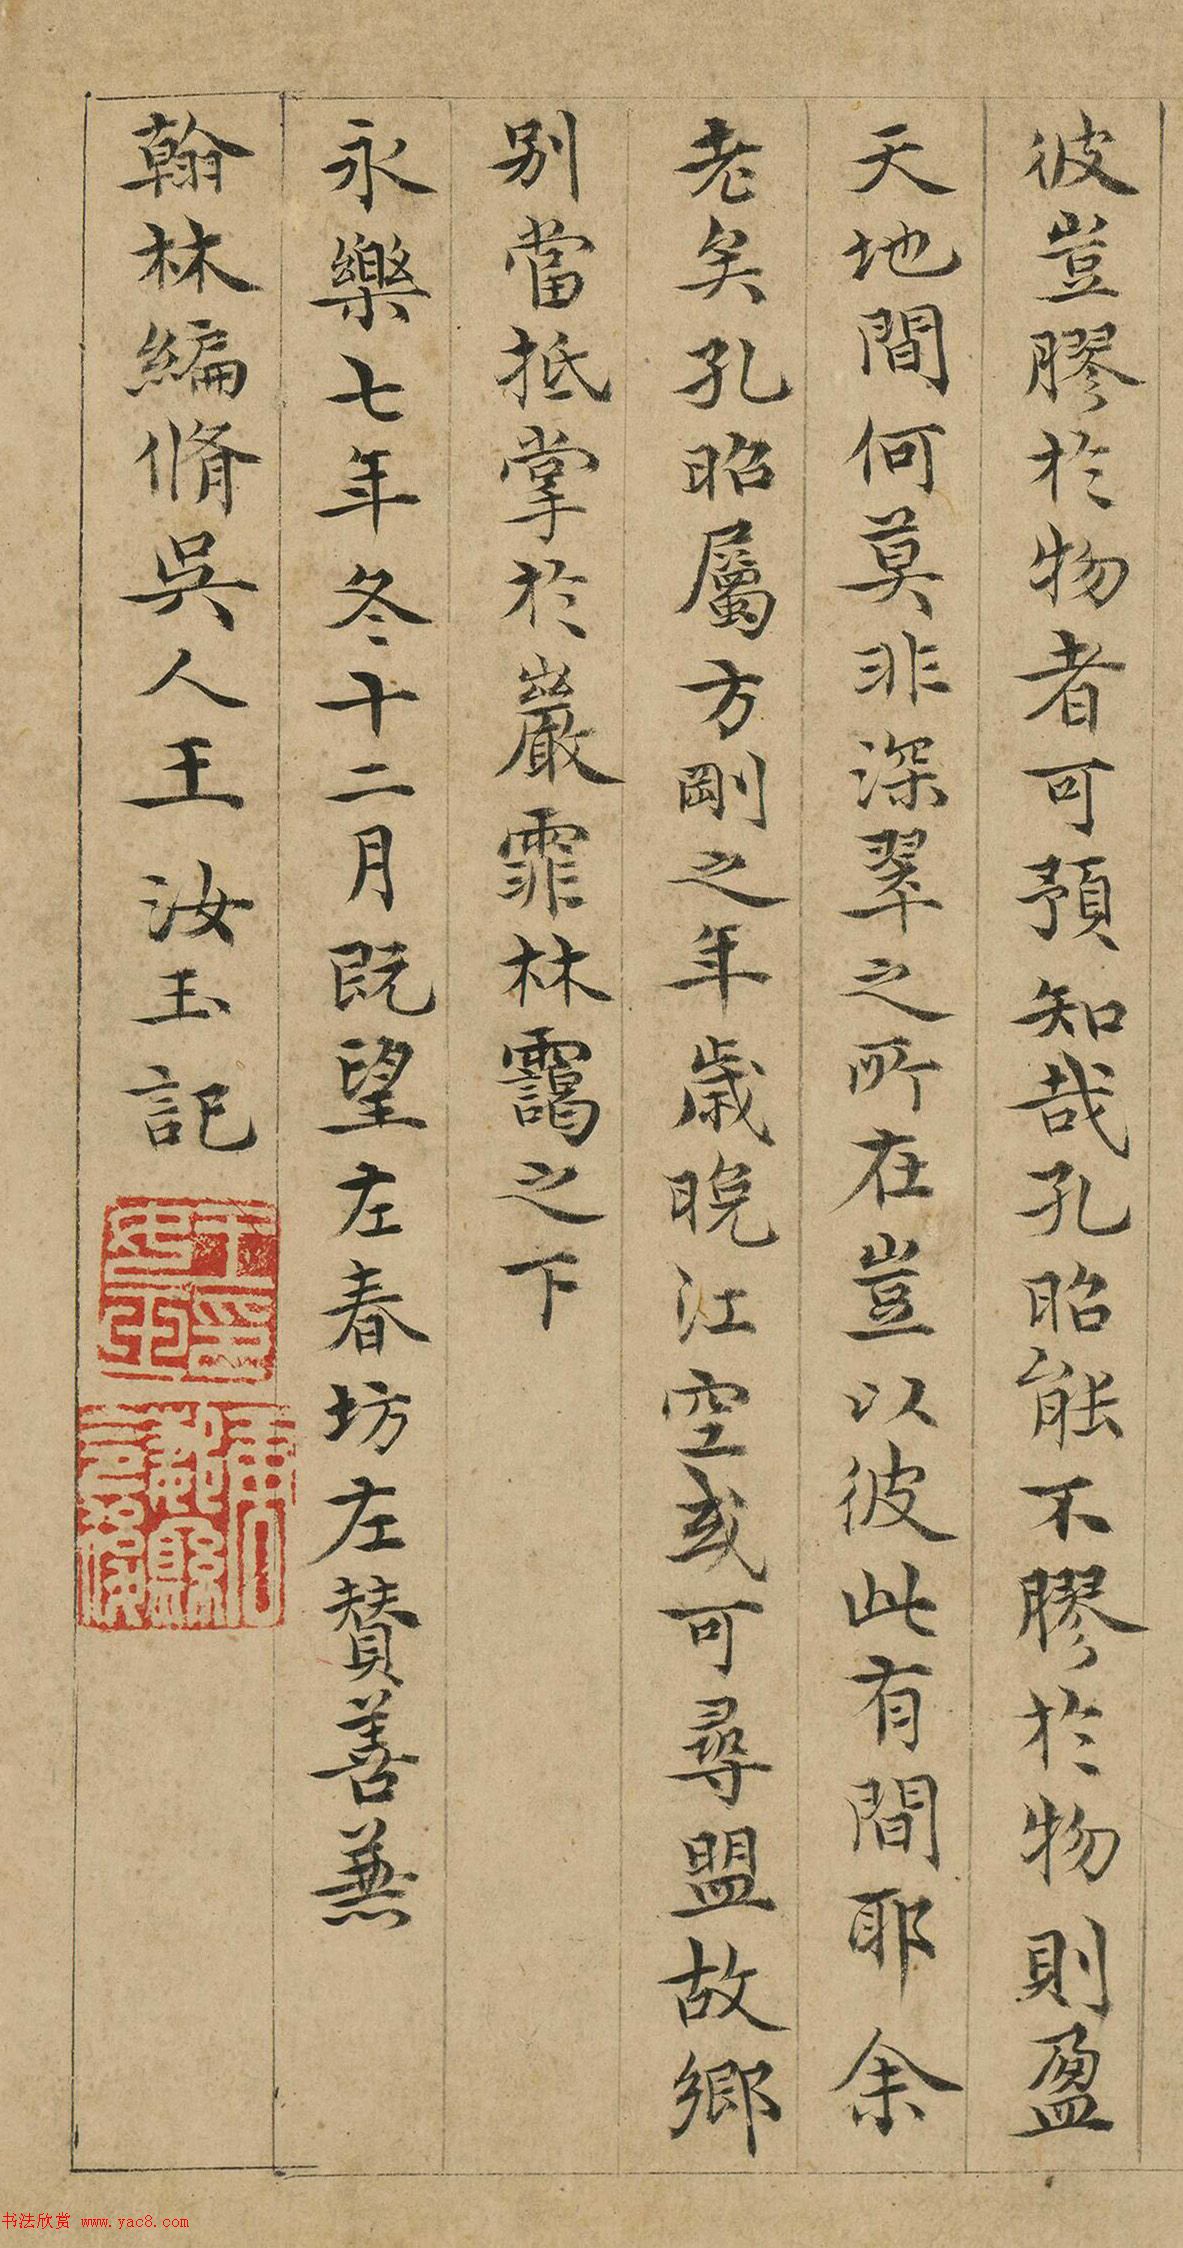 彼豈膠於物者可預知哉孔昭能不膠於物則盈
天地間何莫非深翠之所在豈以彼此有間耶余
老矣孔昭屬方剛之年歲晚江空或可尋盟故鄉
別當抵掌於巖霏林靄之下
永樂七年冬十二月既望左春坊左賛善兼
翰林編脩吳人王汝玉記
书法欣赏 www.yac8.com